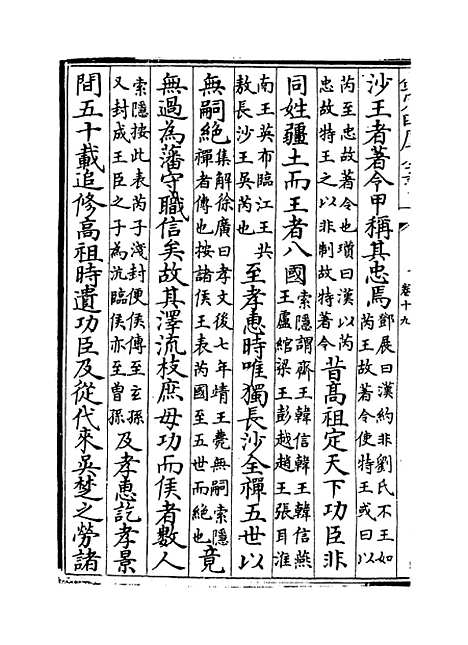 卷十九
沙王者著令甲稱其忠焉鄧展曰漢約非劉氏不王如芮王故著令使特王或曰以
芮至忠故著令也瓚曰漢以芮忠故特王之以非制故特著令昔高祖定天下功臣非
同姓疆土而王者八國索隱謂齊王韓信韓王韓信燕王盧綰梁王彭越趙王張耳淮
南王英布臨江王共敖長沙王吳芮也至孝惠時唯獨長沙全禪五世以
無嗣絶集解徐廣曰孝文後七年靖王薨無嗣索隱禪者傳也按諸侯王表芮國至五世而絶也竟
無過為藩守職信矣故其澤流枝庶毋功而侯者數人
索隱按此表芮子淺封便侯傳至玄孫又封成王臣之子為沅臨侯亦至曾孫及孝惠訖孝景
間五十載追修高祖時遺功臣及從代來吳楚之勞諸